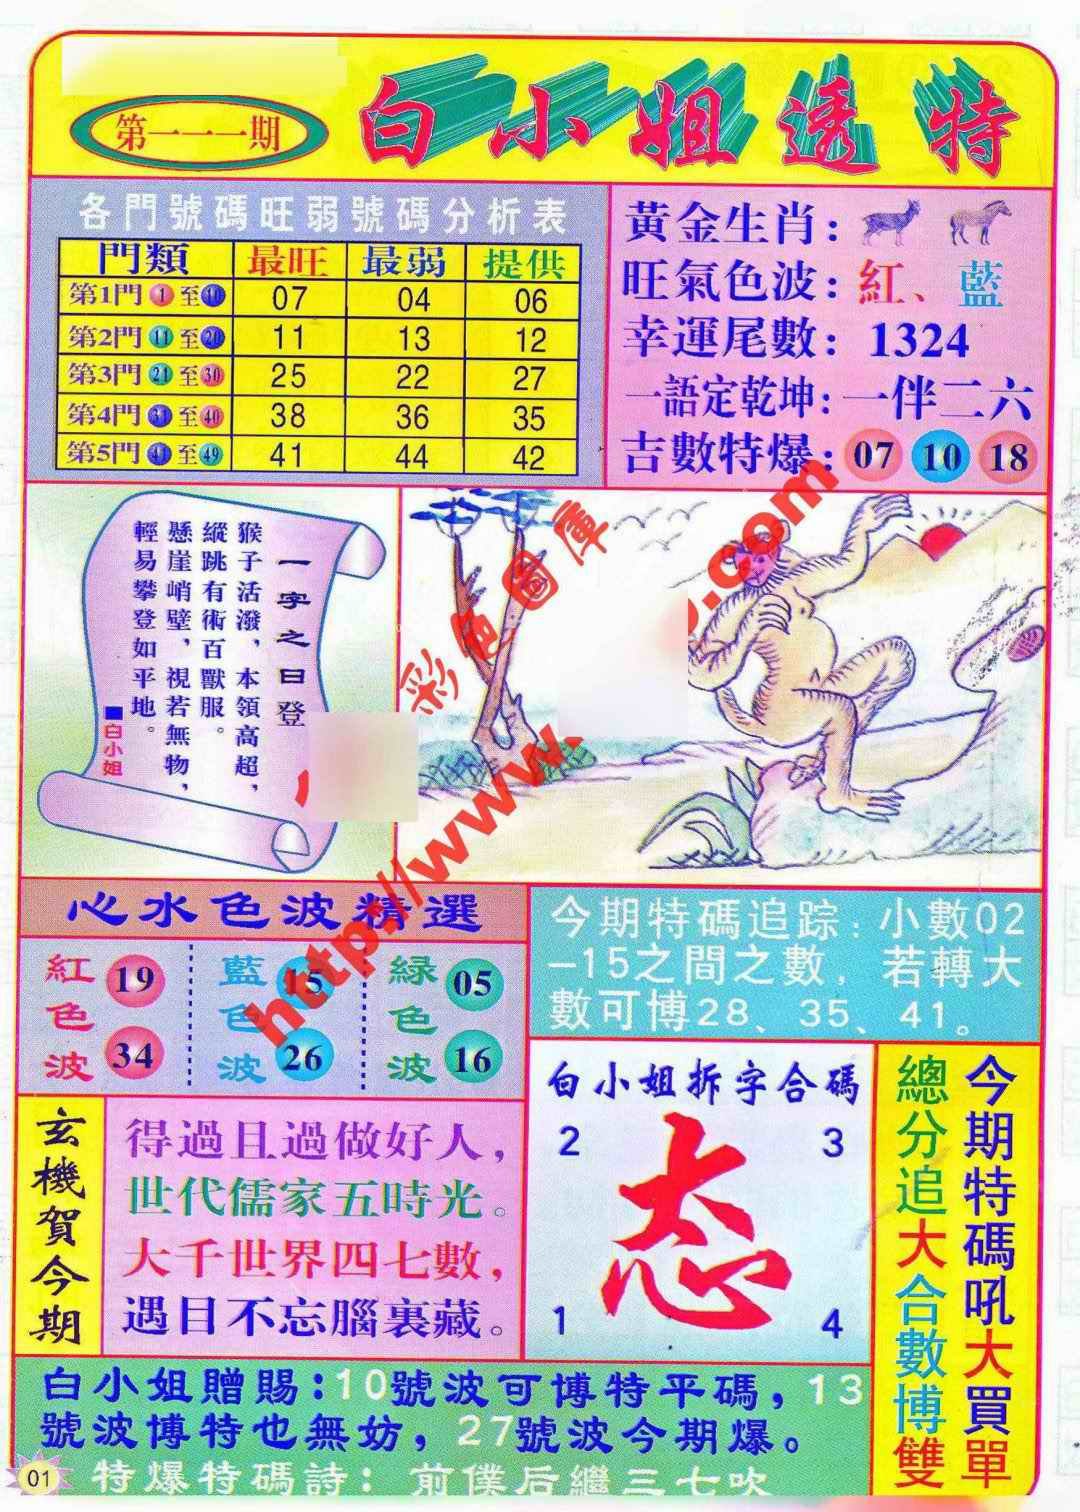 第一一一期
白小姐透特
各門號碼旺弱號碼分析表
門類 最旺 最弱 提供
第1門 1 至 10 07 04 06
第2門 11 至 20 11 13 12
第3門 21 至 30 25 22 27
第4門 31 至 40 38 36 35
第5門 41 至 49 41 44 42
黃金生肖:
旺氣色波: 紅、藍
幸運尾數: 1324
一語定乾坤: 一伴二六
吉數特爆: 07 10 18
一字之曰登
猴子活潑，本領高超，
縱跳有術百獸服。
懸崖峭壁，視若無物，
輕易攀登如平地。
■白小姐
彩色圖庫
http://www.
.com
心水色波精選
紅色波 19 34
藍色波 15 26
緑色波 05 16
今期特碼追踪: 小數02
-15之間之數，若轉大
數可博28、35、41。
玄機賀今期
得過且過做好人，
世代儒家五時光。
大千世界四七數，
遇目不忘腦裏藏。
白小姐拆字合碼
2 3
态
1 4
今期特碼吼大買單
總分追大合數博雙
白小姐贈賜:10號波可博特平碼，13
號波博特也無妨，27號波今期爆。
特爆特碼詩: 前僕后繼三七吹
01